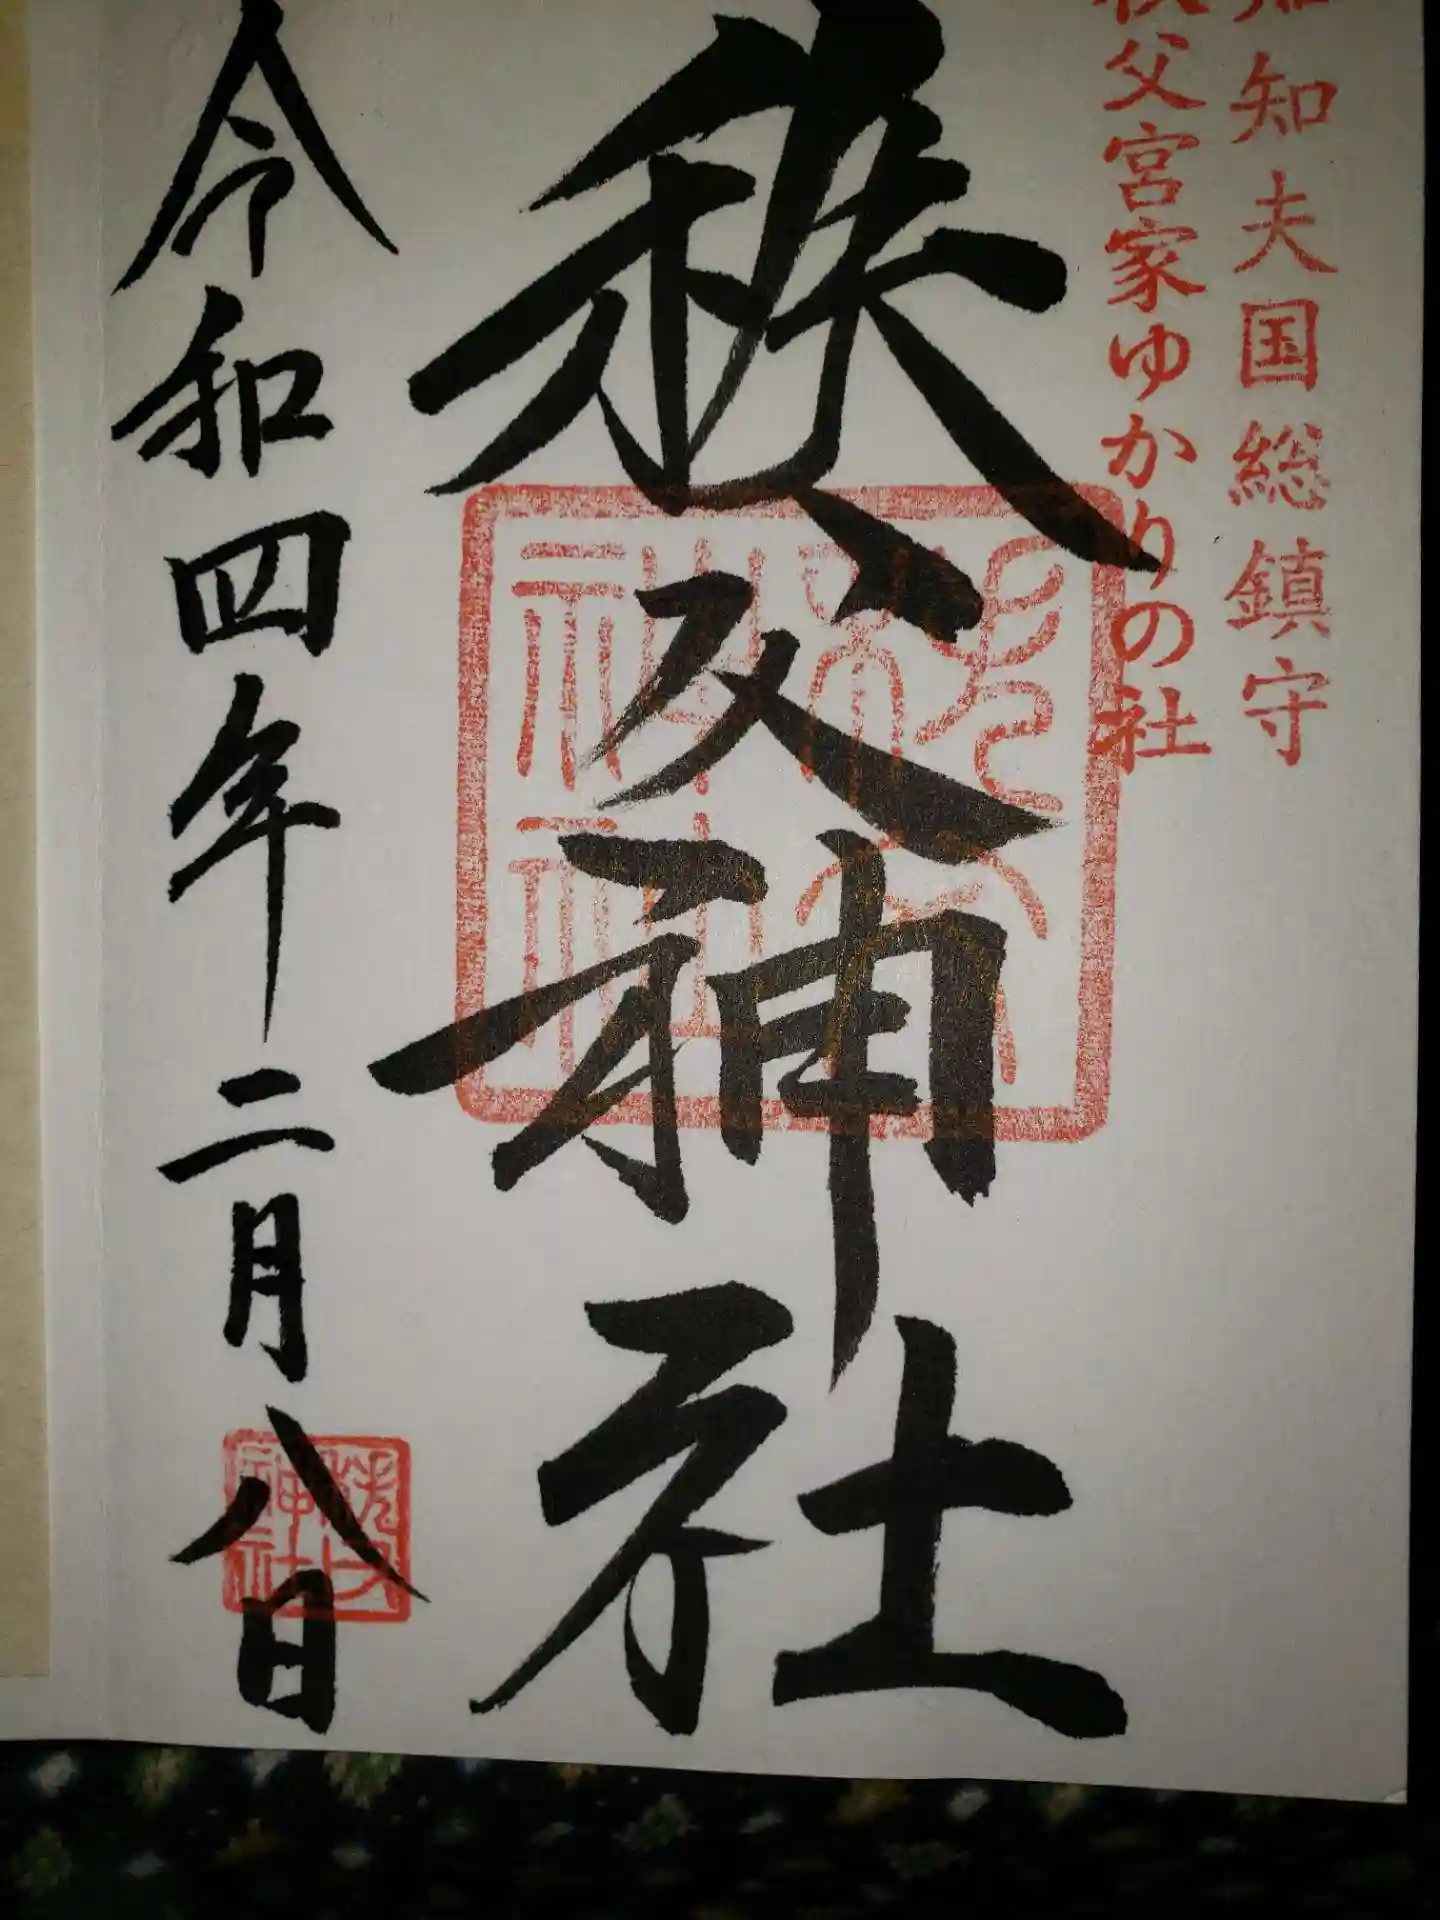 知知夫国総鎮守
秩父宮家ゆかりの社
秩父神社
令和四年二月八日
秩父神社